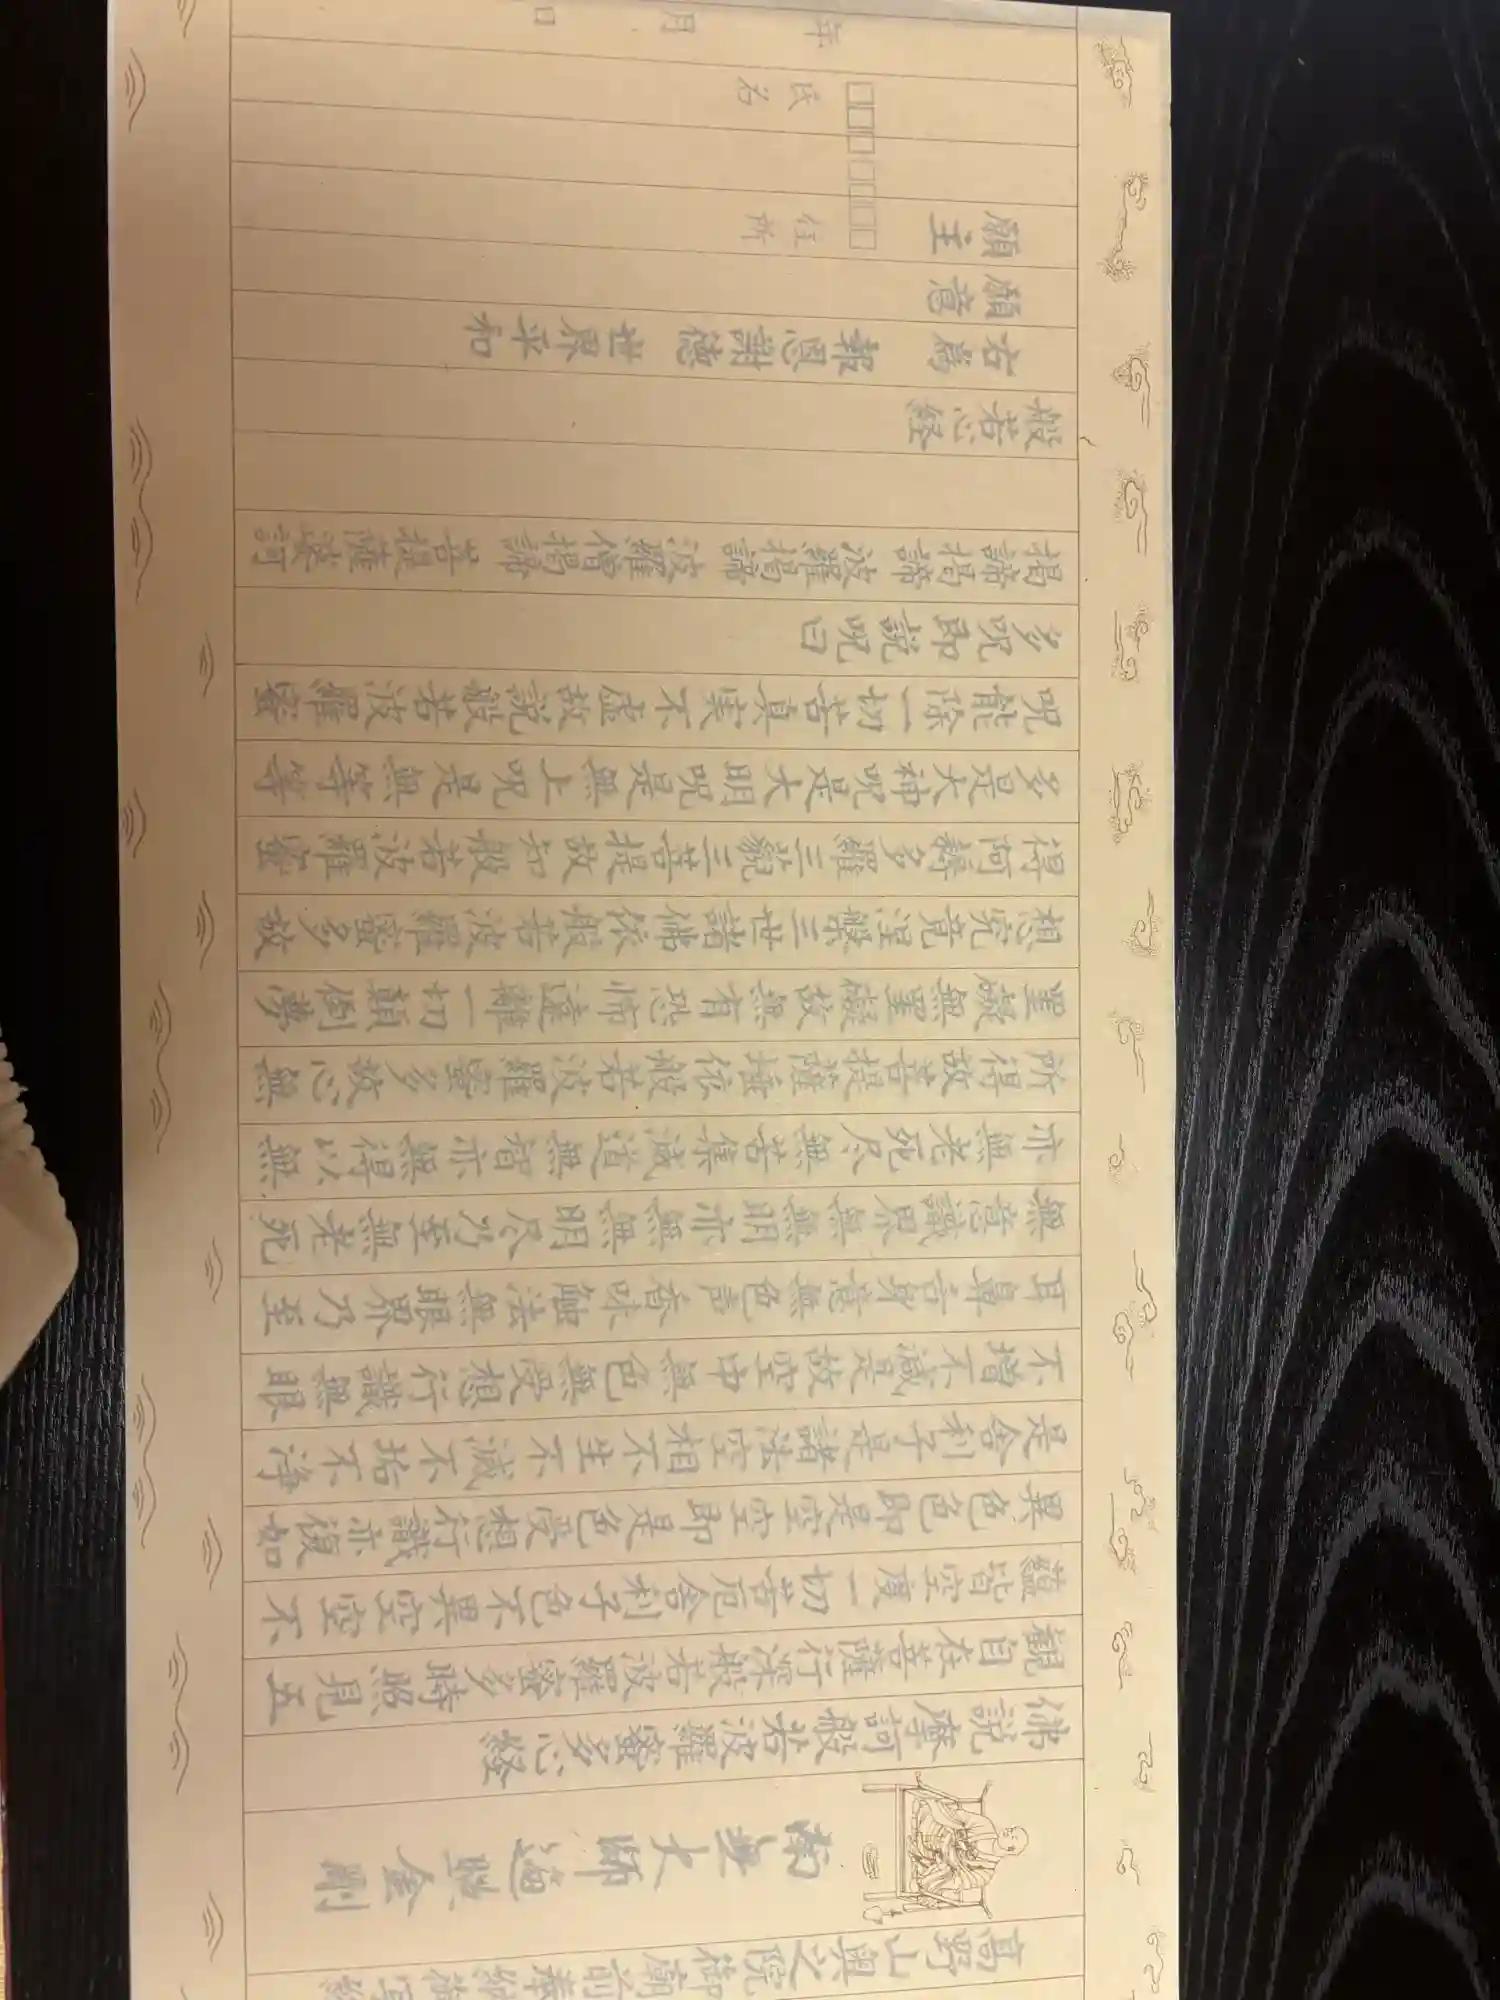 高野山奥之院御廟前奉納御写経
南無大師遍照金剛
佛説摩訶般若波羅蜜多心経
観自在菩薩行深般若波羅蜜多時照見五
蘊皆空度一切苦厄舎利子色不異空空不
異色色即是空空即是色受想行識亦復如
是舎利子是諸法空相不生不滅不垢不浄
不増不減是故空中無色無受想行識無眼
耳鼻舌身意無色声香味触法無眼界乃至
無意識界無無明亦無無明尽乃至無老死
亦無老死尽無苦集滅道無智亦無得以無
所得故菩提薩埵依般若波羅蜜多故心無
罣礙無罣礙故無有恐怖遠離一切顛倒夢
想究竟涅槃三世諸佛依般若波羅蜜多故
得阿耨多羅三藐三菩提故知般若波羅蜜
多是大神呪是大明呪是無上呪是無等等
呪能除一切苦真実不虚故説般若波羅蜜
多呪即説呪曰
掲諦掲諦 波羅掲諦 波羅僧掲諦 菩提薩婆訶
般若心経
右為 報恩謝徳 世界平和
願意
願主
住所
氏名
年 月 日